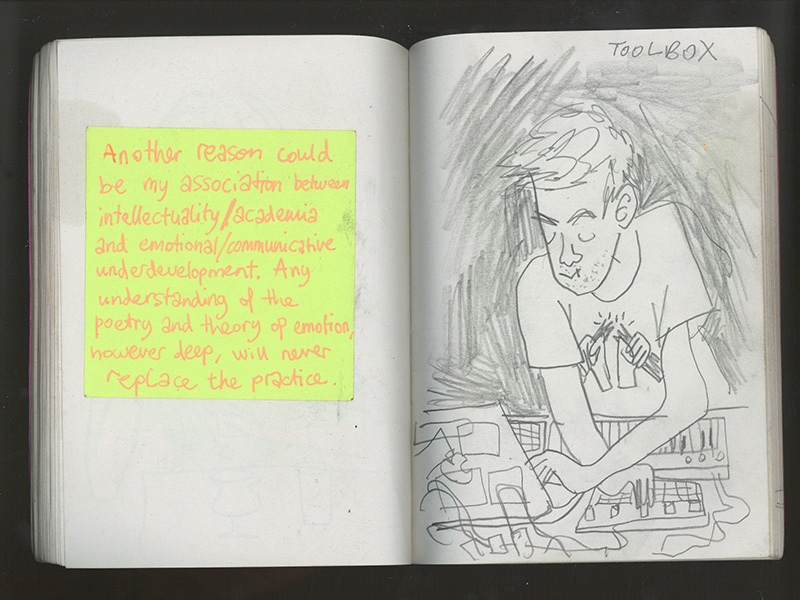 Another reason could
be my association between
intellectuality/academia
and emotional/communicative
underdevelopment. Any
understanding of the
poetry and theory of emotion,
however deep, will never
replace the practice.
TOOLBOX